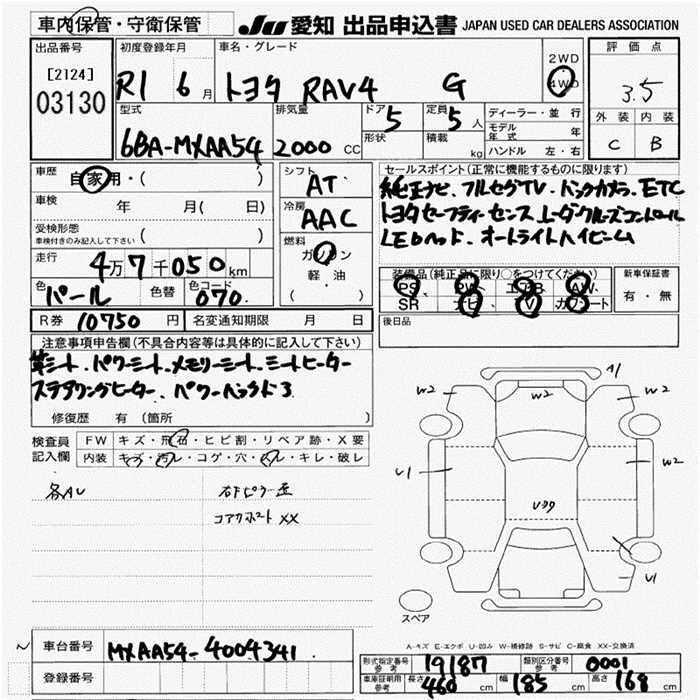 車内保管・守衛保管
JU 愛知 出品申込書 JAPAN USED CAR DEALERS ASSOCIATION
出品番号
[2124]
03130
初度登録年月
R1 6月
車名・グレード
トヨタ RAV4 G
2WD
4WD
評価点
3.5
外装 内装
C B
型式
6BA-MXAA54
排気量
2000 CC
ドア 5
形状
定員 5人
積載 kg
ディーラー・並行
モデル年式 年
ハンドル 左・右
車歴
自家用・( )
車検 年 月( 日)
受検形態
車検付きのみ記入して下さい ( )
走行
4万7千050km
色
パール
色替
色コード
070
シフト
AT
冷房
AAC
燃料
ガソリン
軽・油
( )
セールスポイント(正常に機能するものに限ります)
純正ナビ、フルセグTV、バックカメラ、ETC
トヨタセーフティーセンス、レーダークルーズコントロール
LEDヘッド、オートライトハイビーム
装備品(純正品に限り○をつけてください)
PS PW エアB AW
SR ナビ TV カワシート
新車保証書
有・無
後日品
R券 10750 円 名変通知期限 月 日
注意事項申告欄(不具合内容等は具体的に記入して下さい)
革シート、パワーシート、メモリーシート、シートヒーター
ステアリングヒーター、パワーバックドア
修復歴 有(箇所 )
検査員
記入欄
FW キズ・飛石・ヒビ割・リペア跡・X要
内装 キズ・汚レ・コゲ・穴・スレ・キレ・破レ
各AU
右Fピラー歪
コアサポート XX
A1
W2 W2 W2
U1 W2
U39
U1
スペア
A-キズ E-エクボ U-凹み W-補修跡 S-サビ C-腐食 XX-交換済
車台番号 MXAA54-4004341
登録番号
形式指定番号 参考 19187 類別区分番号 参考 0001
車庫証明用 参考 長さ 460 cm 幅 185 cm 高さ 168 cm